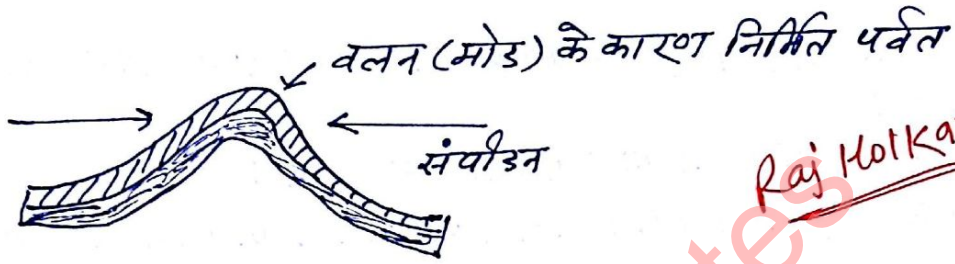 वलन (मोड) के कारण निर्मित पर्वत
संपीडन
Raj Holka